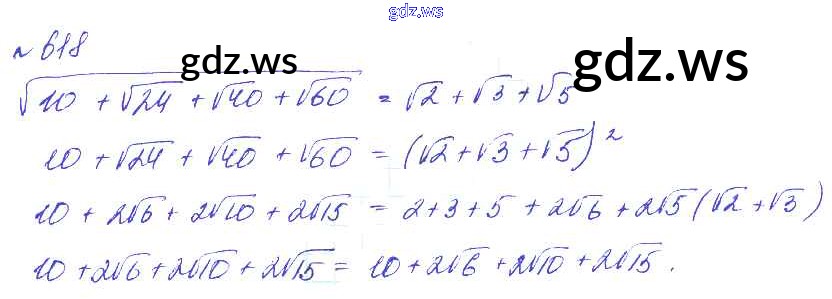 gdz.ws
№ 618
gdz.ws gdz.ws
√(10 + √24 + √40 + √60) = √2 + √3 + √5
10 + √24 + √40 + √60 = (√2 + √3 + √5)²
10 + 2√6 + 2√10 + 2√15 = 2 + 3 + 5 + 2√6 + 2√5 (√2 + √3)
10 + 2√6 + 2√10 + 2√15 = 10 + 2√6 + 2√10 + 2√15.